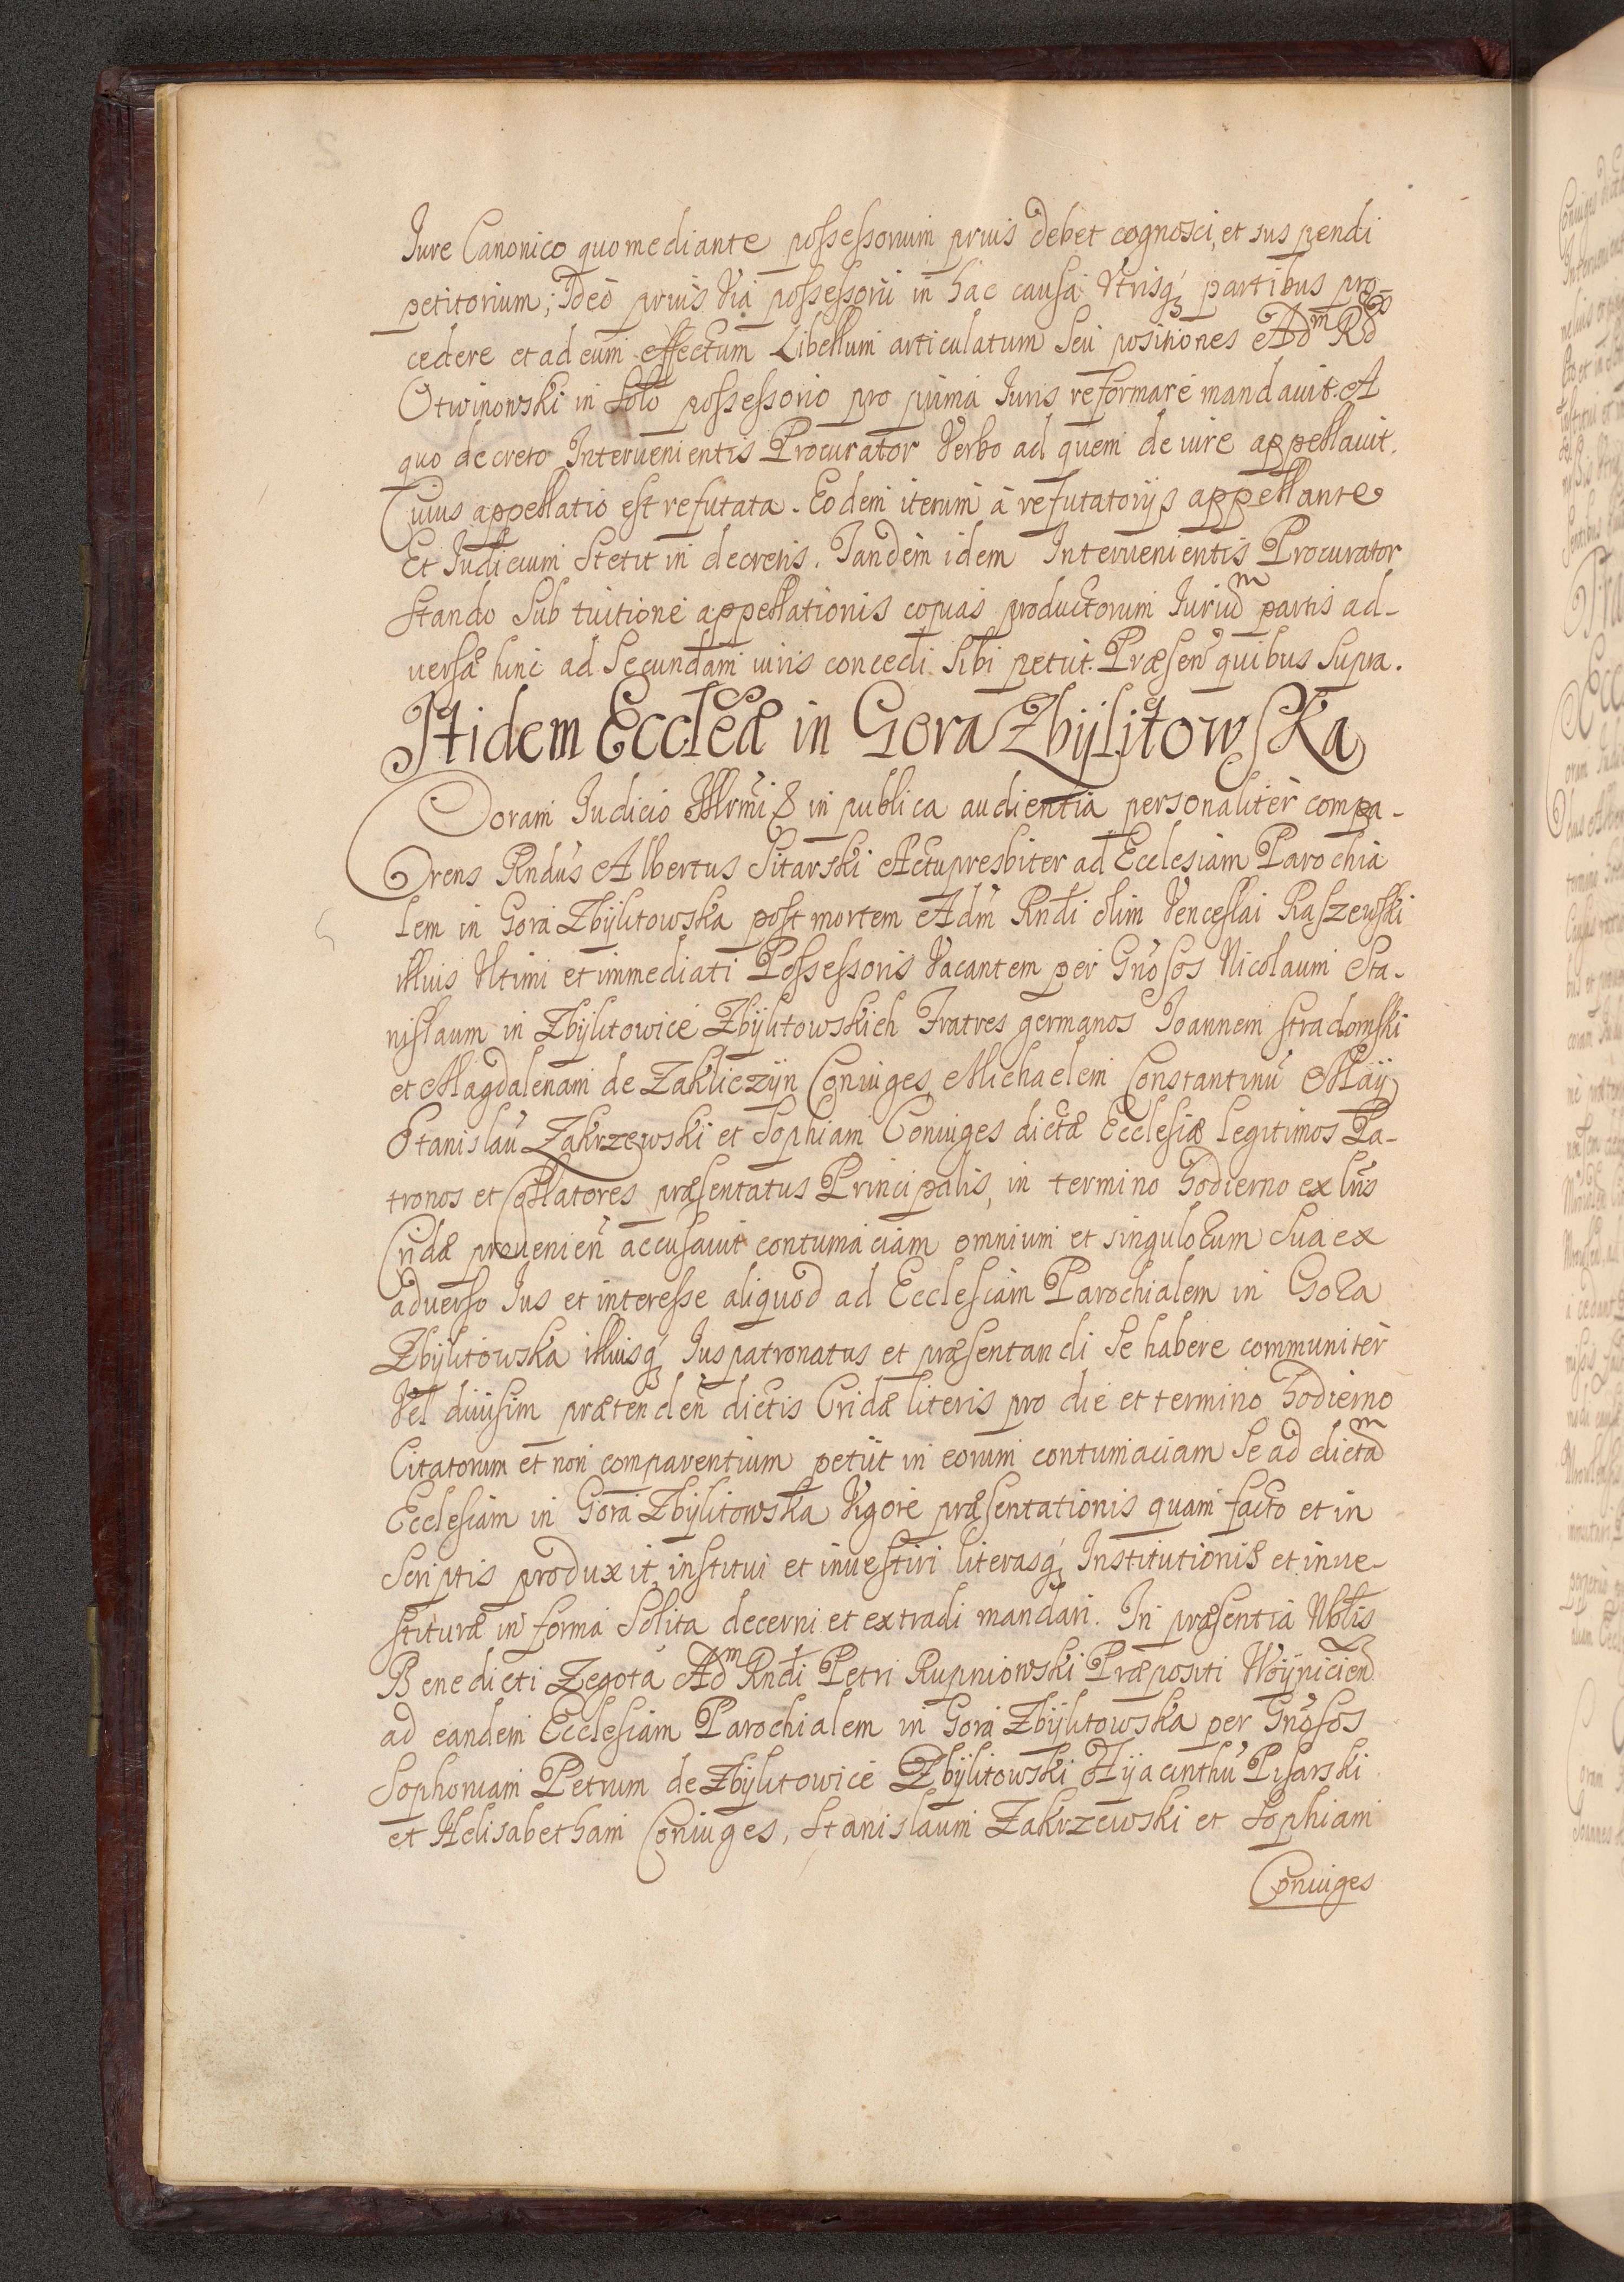 Iure Canonico quo mediante possessorium prius debet cognosci, et suspendi
petitorium; Ideo prius via possessorij in hac causa Vtrisq; partibus pro-
cedere et ad eum effectum Libellum articulatum seu positiones Adm Rdo
Otwinowski in solo possessorio pro prima Iuris reformare mandauit. A
quo decreto Interuenientis Procurator Verbo ad quem de iure appellauit.
Cuius appellatio est refutata. Eodem iterum à refutatorijs appellante
Et Iudicium stetit in decretis. Tandem idem Interuenientis Procurator
stando sub tuitione appellationis copias productorum Iurium partis ad-
uersæ hinc ad secundam iuris concedi sibi petijt. Præsen quibus supra.
Itidem Eccleæ in Gora Zbijlitowska
Coram Iudicio Illrmi & in publica audientia personaliter compa-
rens Rndus Albertus Sitarski Actupresbiter ad Ecclesiam Parochia
lem in Gora Zbijlitowska post mortem Adm Rndi olim Venceslai Raszewski
illius Vltimi et immediati Possessoris Vacantem per Gnosos Nicolaum Sta-
nislaum in Zbijlitowice Zbijlitowskich Fratres germanos Ioannem stradomski
et Magdalenam de Zakliczijn Coniuges Michaelem Constantinu Maij
Stanislau Zakrzewski et Sophiam Coniuges dictæ Ecclesiæ legitimos Pa-
tronos et Collatores præsentatus Principalis, in termino hodierno ex lris
Cridæ prouenien accusauit contumaciam omnium et singulorum sua ex
aduerso Ius et interesse aliquod ad Ecclesiam Parochialem in Gora
Zbijlitowska illiusq; Iuspatronatus et præsentandi se habere communiter
Vel diuisim prætenden dictis Cridæ literis pro die et termino hodierno
Citatorum et non comparentium petijt in eorum contumaciam se ad dictam
Ecclesiam in Gora Zbijlitowska Vigore præsentationis quam facto et in
scriptis produxit, institui et inuestiri literasq; Institutionis et inue-
stituræ in forma solita decerni et extradi mandari. In præsentia Nbtis
Benedicti Zegota Adm Rndi Petri Rupniowski Præpositi Woijnicien
ad eandem Ecclesiam Parochialem in Gora Zbijlitowska per Gnosos
Sophoniam Petrum de Zbijlitowice Zbijlitowski Hijacinthu Pisarski
et Helisabetham Coniuges, Stanislaum Zakrzewski et Sophiam
Coniuges